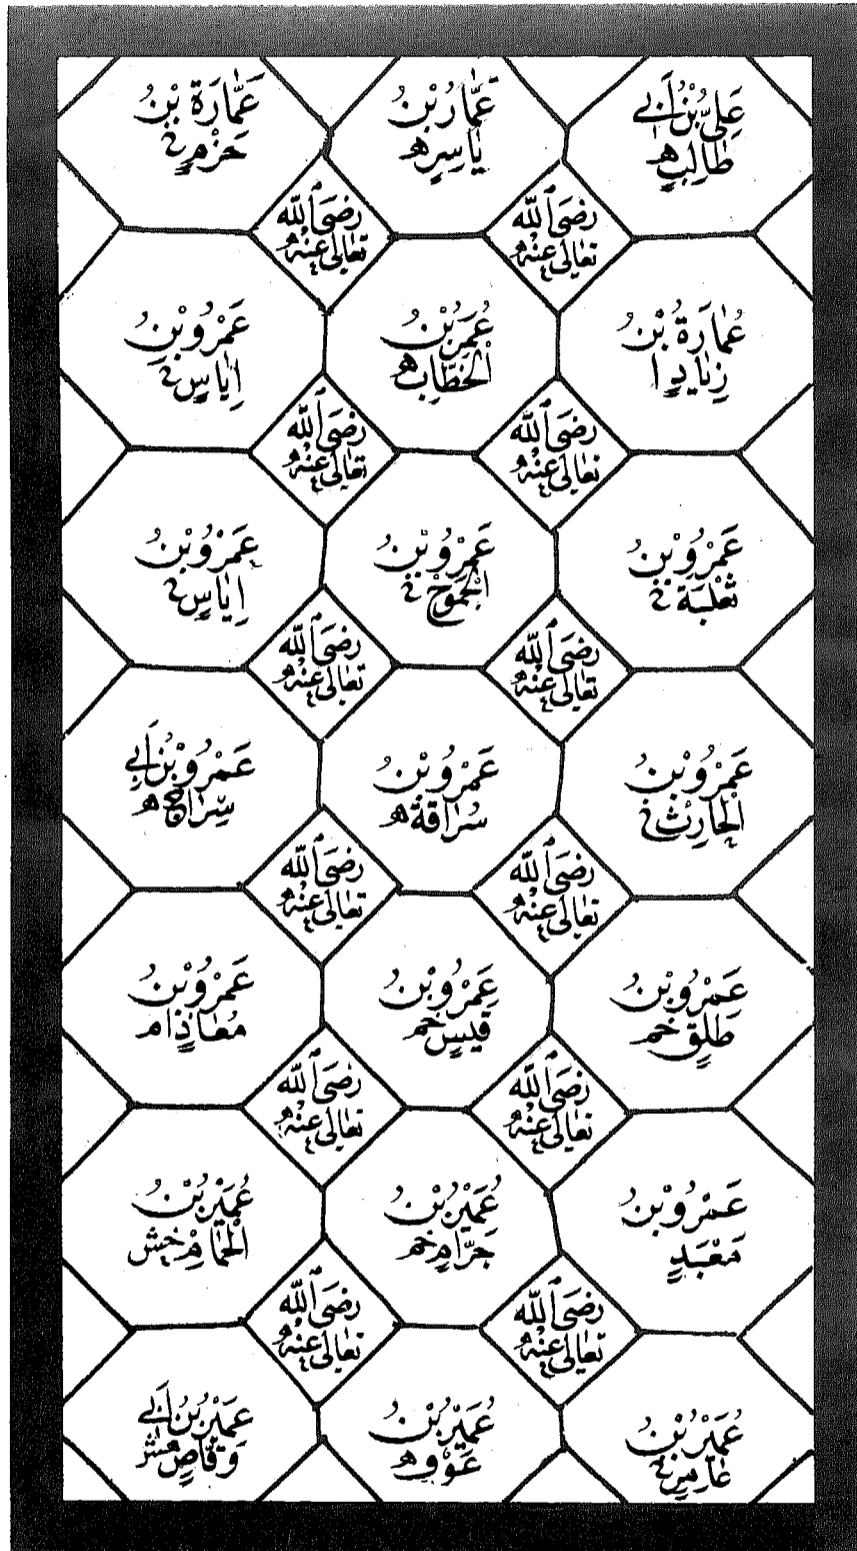 عَلِيُّ بْنُ أَبِي
طَالِبٍ ه
عَمَّارُ بْنُ
يَاسِرٍ ه
عَمَّارَةُ بْنُ
حَزْمٍ خ
رَضِىَ اللّٰه
تَعَالٰى عَنْهُ
رَضِىَ اللّٰه
تَعَالٰى عَنْهُ
عُمَارَةُ بْنُ
زِيَادٍ ا
عُمَرُ بْنُ
الْخَطَّابِ ه
عَمْرُو بْنُ
اِيَاسٍ خ
رَضِىَ اللّٰه
تَعَالٰى عَنْهُ
رَضِىَ اللّٰه
تَعَالٰى عَنْهُ
عَمْرُو بْنُ
ثَعْلَبَةَ خ
عَمْرُو بْنُ
الْجَمُوْحِ خ
عَمْرُو بْنُ
اِيَاسٍ خ
رَضِىَ اللّٰه
تَعَالٰى عَنْهُ
رَضِىَ اللّٰه
تَعَالٰى عَنْهُ
عَمْرُو بْنُ
الْحَارِثِ خ
عَمْرُو بْنُ
سُرَاقَةَ ه
عَمْرُو بْنُ أَبِي
سِرَاجٍ ه
رَضِىَ اللّٰه
تَعَالٰى عَنْهُ
رَضِىَ اللّٰه
تَعَالٰى عَنْهُ
عَمْرُو بْنُ
طَلِقٍ خم
عَمْرُو بْنُ
قَيْسٍ خم
عَمْرُو بْنُ
مُعَاذٍ ام
رَضِىَ اللّٰه
تَعَالٰى عَنْهُ
رَضِىَ اللّٰه
تَعَالٰى عَنْهُ
عَمْرُو بْنُ
مَعْبَدٍ
عُمَيْرُ بْنُ
حَرَّامٍ خم
عُمَيْرُ بْنُ
الْحُمَامِ خش
رَضِىَ اللّٰه
تَعَالٰى عَنْهُ
رَضِىَ اللّٰه
تَعَالٰى عَنْهُ
عُمَيْرُ بْنُ
عَامِرٍ خ
عُمَيْرُ بْنُ
عَوْفٍ ه
عُمَيْرُ بْنُ أَبِي
وَقَّاصٍ